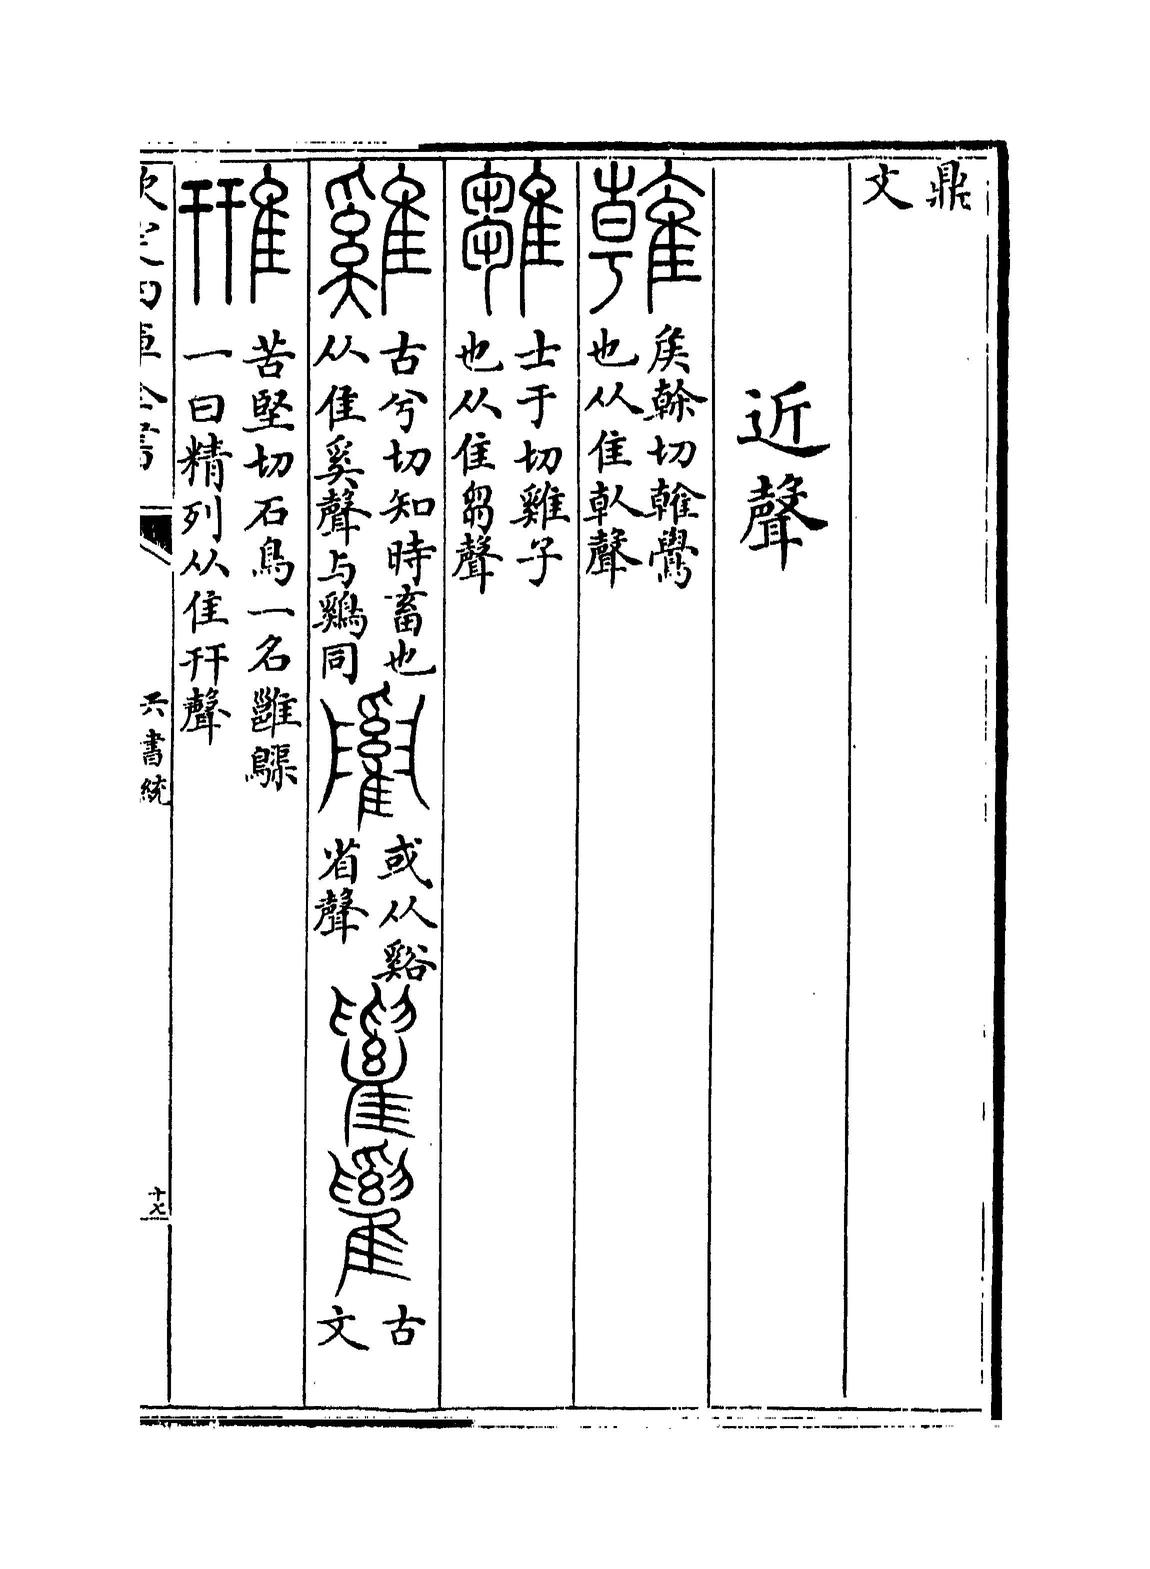 鼎
文
近聲
雗
矦榦切雗鷽
也从隹倝聲
雛
士于切雞子
也从隹芻聲
雞
古兮切知時畜也
从隹奚聲与鷄同
或从谿
省聲
古
文
雃
苦堅切石鳥一名雝
一曰精列从隹幵聲
欽定四庫全書
六書統
十七